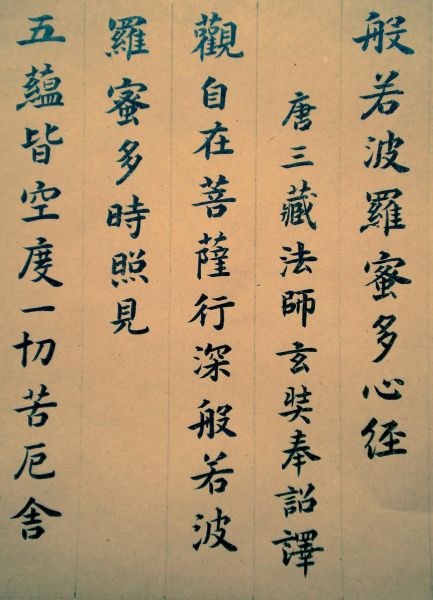 般若波羅蜜多心経
唐三藏法師玄奘奉詔譯
觀自在菩薩行深般若波
羅蜜多時照見
五蘊皆空度一切苦厄舎